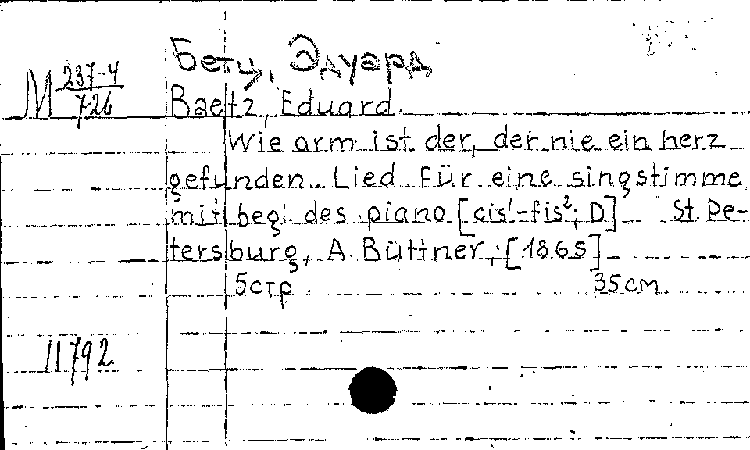 Бетц, Эдуард
М 237-4/726
Baetz, Eduard.
Wie arm ist der, der nie ein herz
gefunden. Lied für eine singstimme
mit beg. des piano [cis¹-fis²; D] St. Pe-
tersburg, A. Büttner, [1865]
5стр 35см
11792